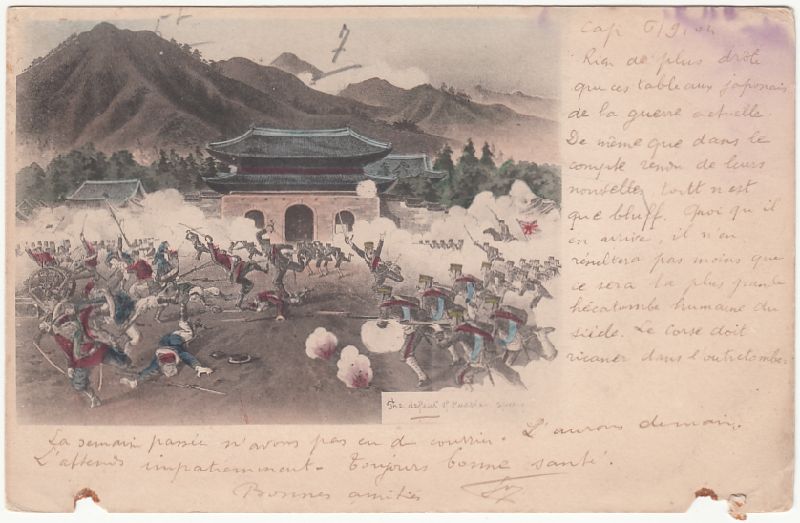 Cap 6/9.04
Rien de plus drôle
que ces tableaux japonais
de la guerre actuelle.
De même que dans le
compte rendu de leurs
nouvelles tout n'est
que bluff. Quoi qu'il
en arrive, il n'en
résultera pas moins que
ce sera la plus grande
hécatombe humaine du
siècle. Le corse doit
ricaner dans l'outretombe.
7
The defeat of Russian
La semain passée n'avons pas eu de courrier. L'aurons demain.
L'attends impatiemment. Toujours bonne santé.
Bonnes amitiés